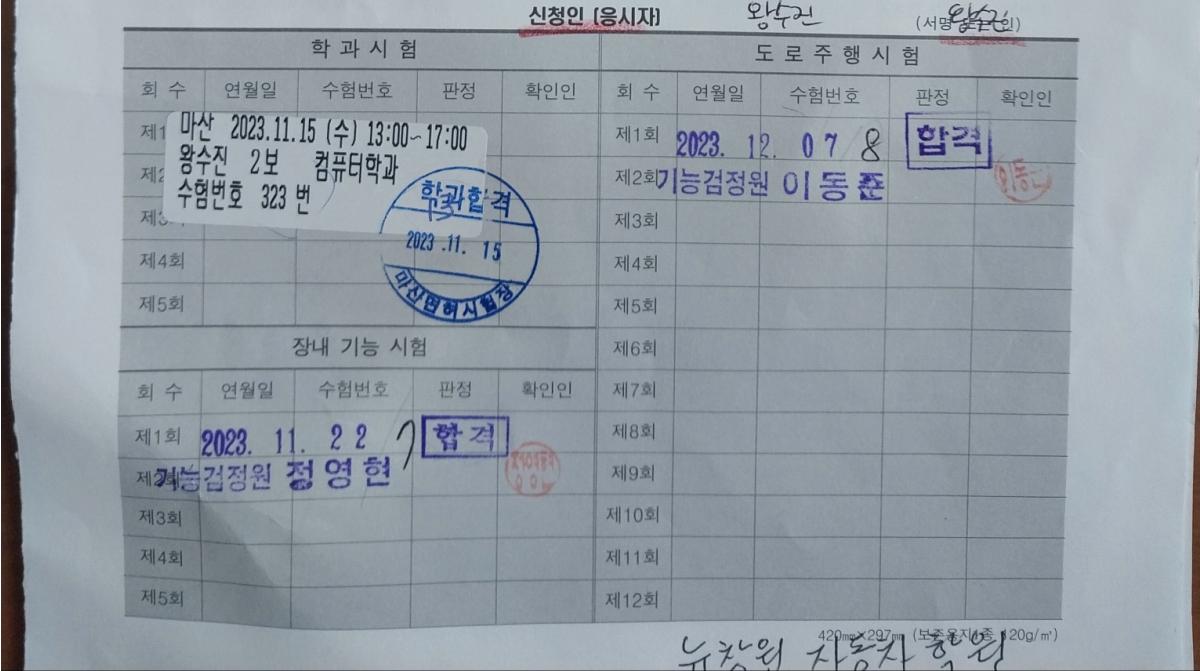 신청인 [응시자] 왕수진 (서명 인)
학 과 시 험
회 수 연월일 수험번호 판정 확인인
제1
마산 2023.11.15 (수) 13:00~17:00
왕수진 2보 컴퓨터학과
수험번호 323 번
제2
제3
학과합격
2023.11.15
마산면허시험장
제4회
제5회
장내 기능 시험
회 수 연월일 수험번호 판정 확인인
제1회 2023. 11. 22 7 합격
기능검정원 정영현
제3회
제4회
제5회
도 로 주 행 시 험
회 수 연월일 수험번호 판정 확인인
제1회 2023. 12. 07 8 합격
제2회 기능검정원 이동준
제3회
제4회
제5회
제6회
제7회
제8회
제9회
제10회
제11회
제12회
420㎜×297㎜ (보존용지1종 120g/㎡)
뉴창원 자동차 학원